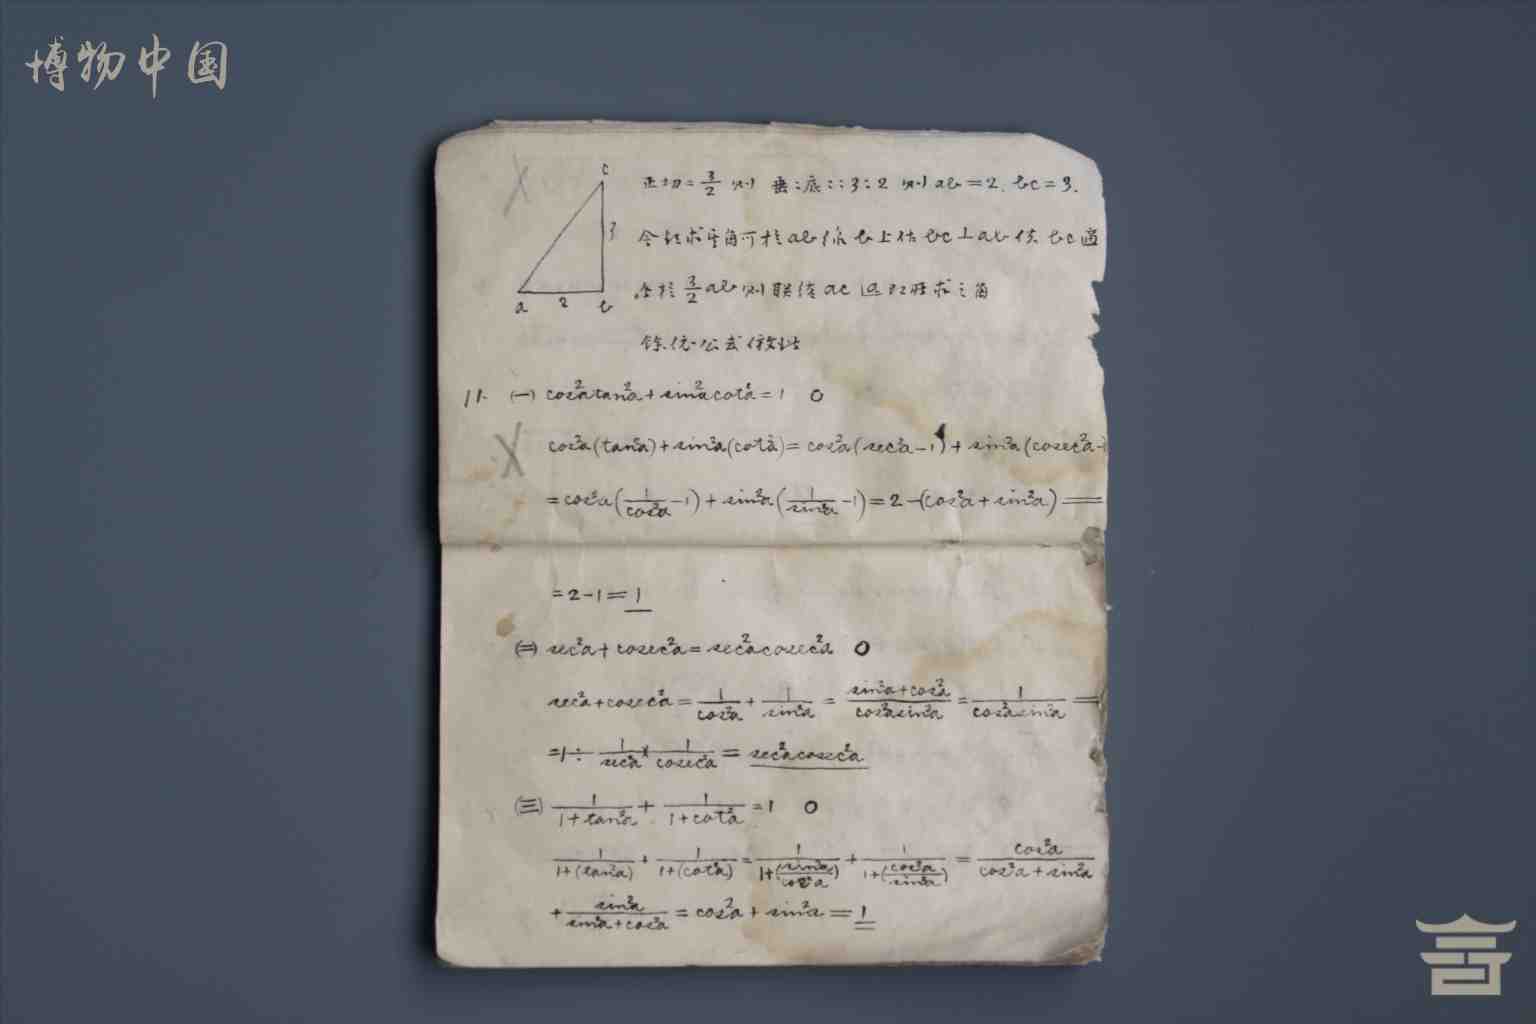 博物中国
c
正切=3/2 则 垂:底::3:2 则 ab=2. bc=3.
3
a 2 b
令 求 角可于ab 作 b上作bc⊥ab 使bc
于3/2ab则联结ac 求之角
余 公式
11. (一) cos²a tan²a + sin²a cot²a = 1 0
cos²a(tan²a)+sin²a(cot²a)=cos²a(sec²a-1)+sin²a(cosec²a-1
=cos²a(1/cos²a -1)+sin²a(1/sin²a -1)=2-(cos²a+sin²a)=
=2-1=1
(二) sec²a+cosec²a=sec²a cosec²a 0
sec²a+cosec²a=1/cos²a+1/sin²a=(sin²a+cos²a)/(cos²a sin²a)=1/(cos²a sin²a)=
=1÷1/sec²a×1/cosec²a=sec²a cosec²a
(三) 1/(1+tan²a)+1/(1+cot²a)=1 0
1/(1+(tan²a))+1/(1+(cot²a))=1/(1+(sin²a/cos²a))+1/(1+(cos²a/sin²a))=cos²a/(cos²a+sin²a)
+sin²a/(sin²a+cos²a)=cos²a+sin²a=1